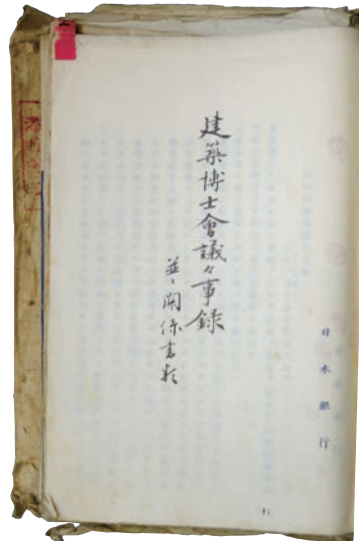 建築博士會議々事録
並ニ関係書類
日本銀行